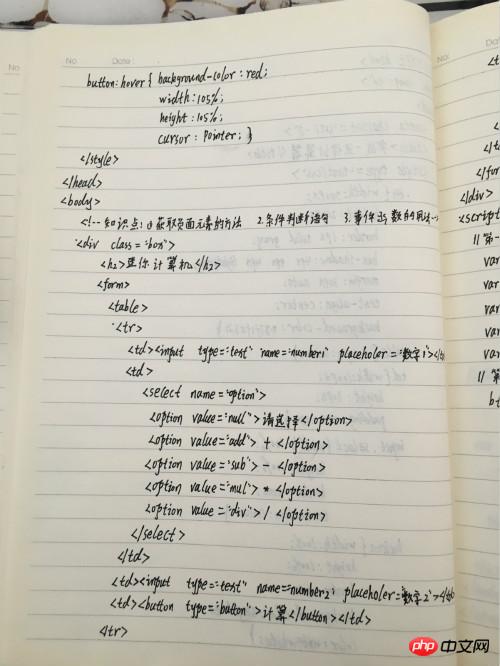 No.
No. Date: .
button:hover{ background-color: red;
width:105%;
height:105%;
cursor: Pointer; }
</style>
</head>
<body>
<!-- 知识点:1获取页面元素的方法 2.条件判断语句 3.事件函数的用法-->
<div class="box">
<h2>迷你计算机</h2>
<form>
<table>
<tr>
<td><input type="text" name="number1" placeholer="数字1"></td>
<td>
<select name="option">
<option value="null">请选择</option>
<option value="add"> + </option>
<option value="sub"> - </option>
<option value="mul"> * </option>
<option value="div"> / </option>
</select>
</td>
<td><input type="text" name="number2" placeholer="数字2"></td>
<td><button type="button">计算</button></td>
</tr>
No.
<t
</t
</for
</div>
<script
// 第一
var
var
var
var
// 第
bt
php 中文网